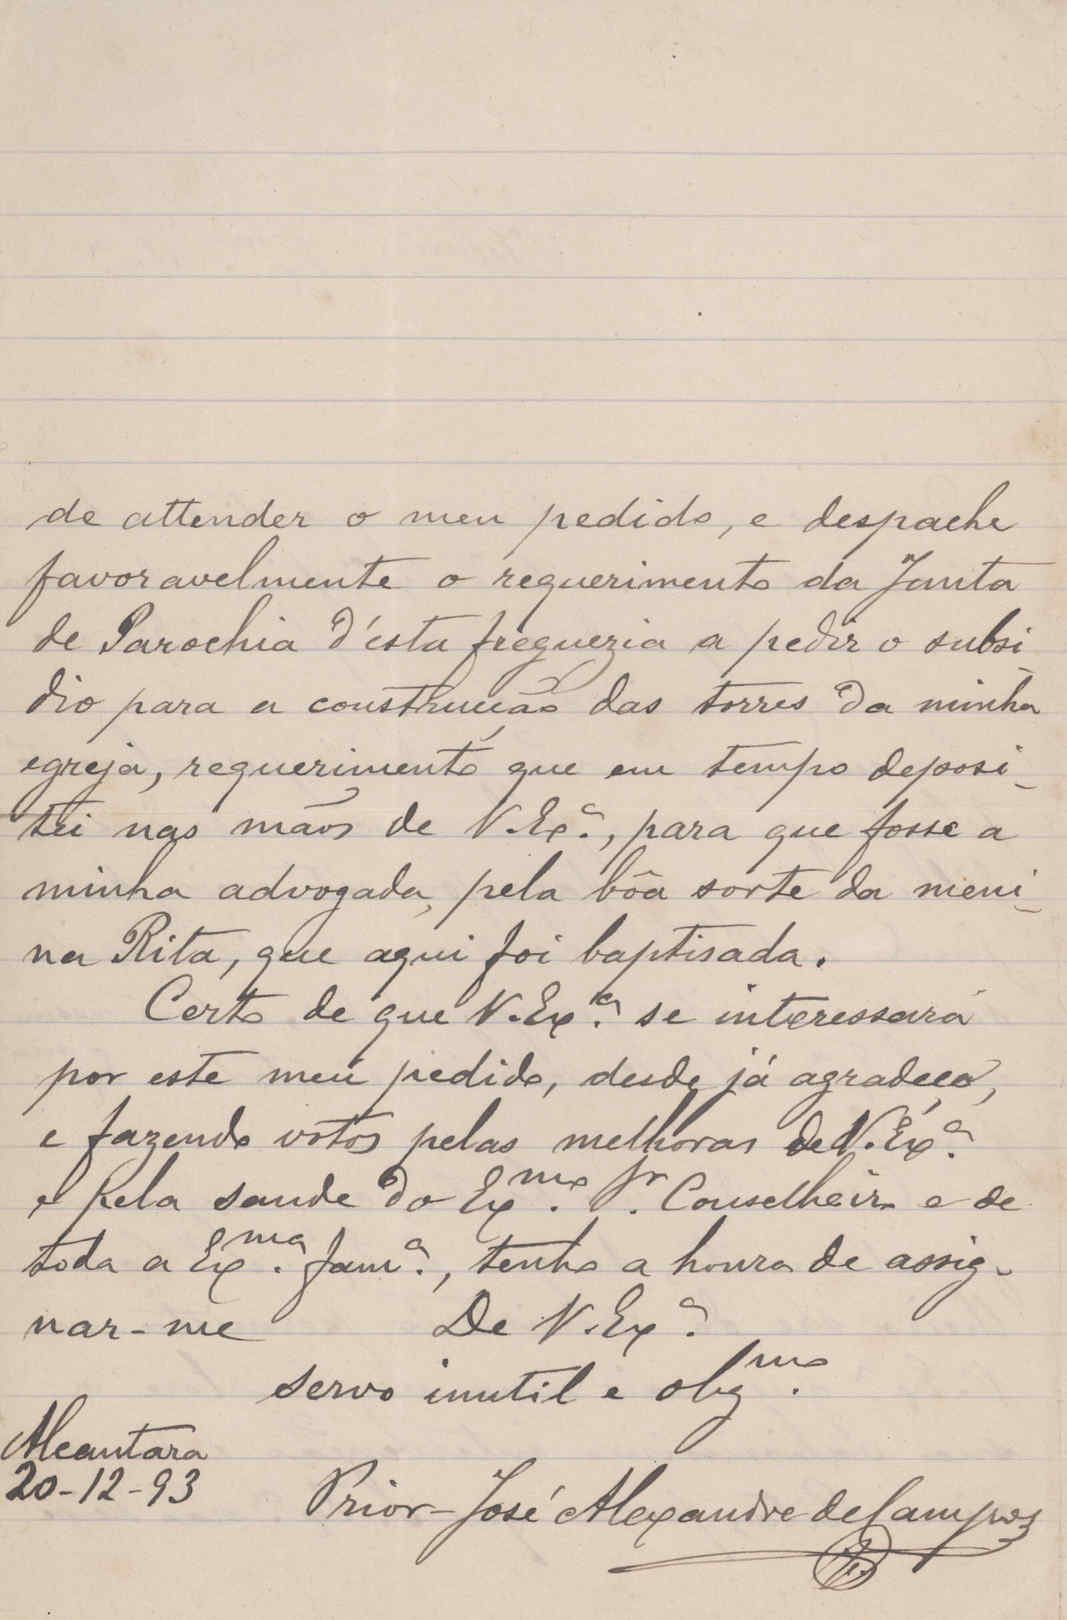 de attender o meu pedido, e despache
favoravelmente o requerimento da Junta
de Parochia d'esta freguezia a pedir o subsi
dio para a construcção das torres da minha
egreja, requerimento que em tempo deposi-
tei nas mãos de V. Exª., para que fosse a
minha advogada, pela bôa sorte da meni-
na Rita, que aqui foi baptisada.
Certo de que V. Exª. se interessará
por este meu pedido, desde já agradeço,
e fazendo votos pelas melhoras de V. Exª.
e pela saude do Exmo. Sr. Conselheiro e de
toda a Exma. Famª., tenho a honra de assig-
nar-me De V. Exª.
servo inutil e obgmo.
Alcantara
20-12-93
Prior - José Alexandre de Campos